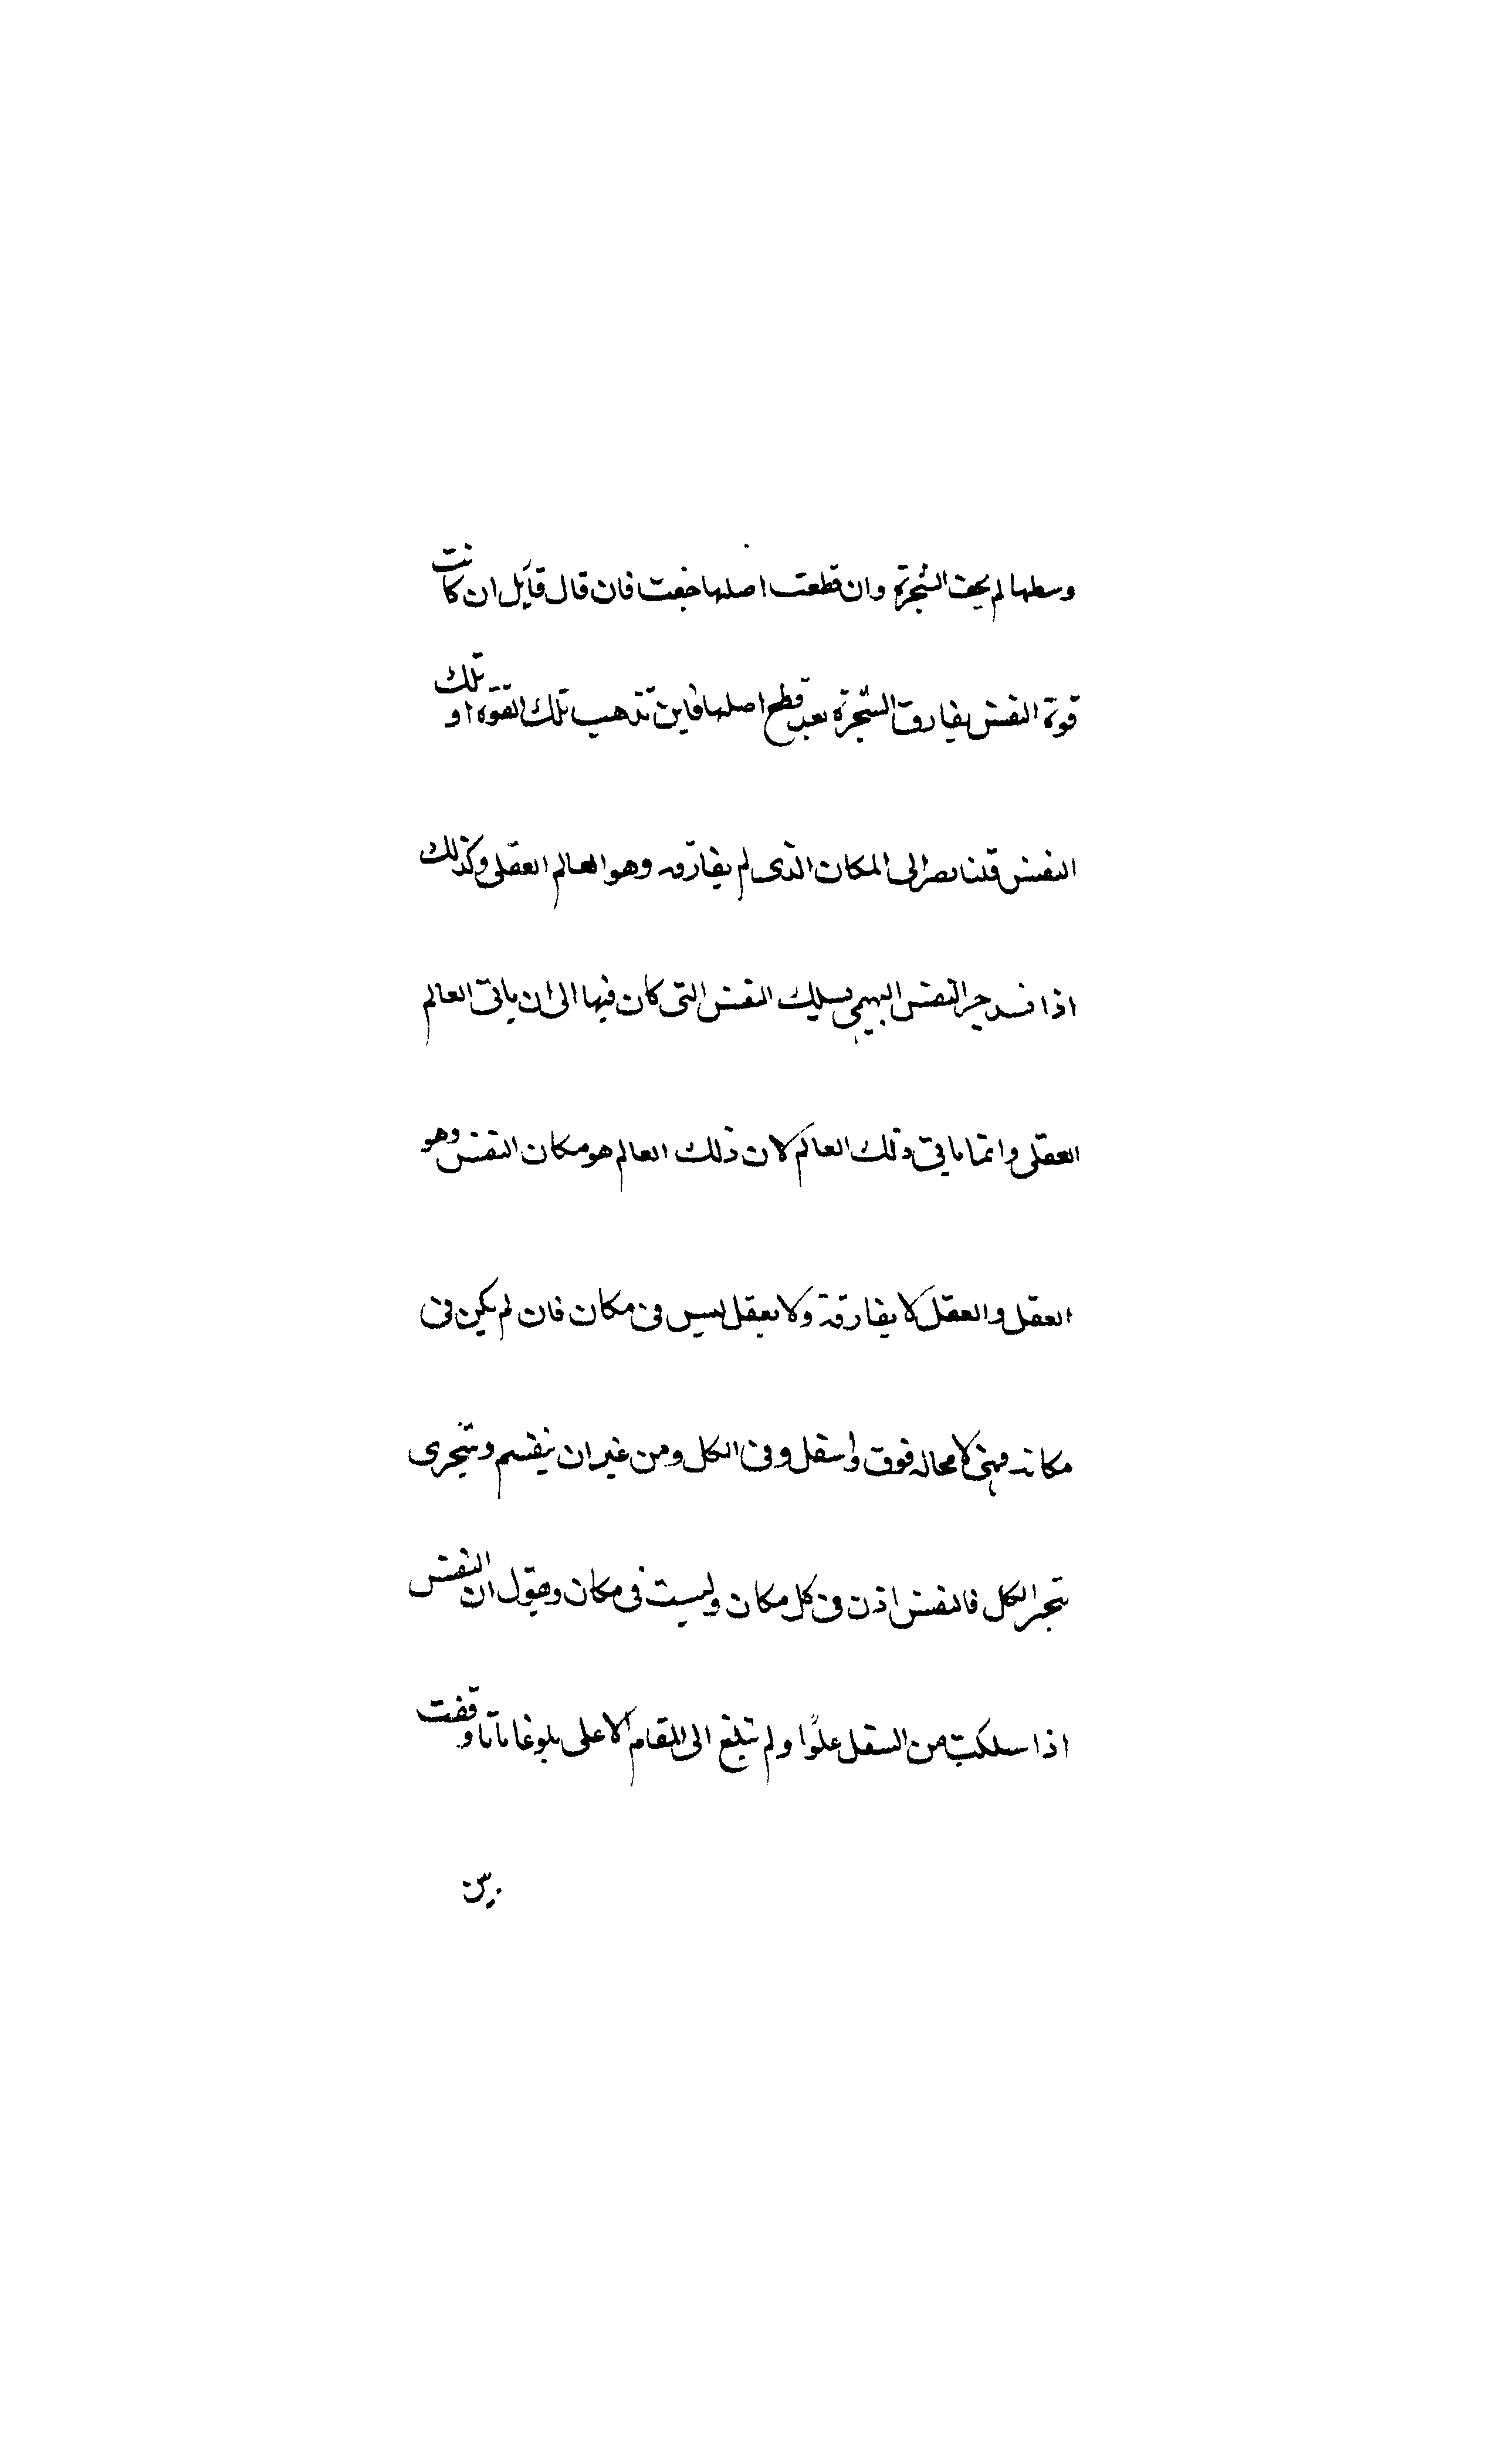 وسطها لم يجف الشجرة وان قطعت اصلها جفت فان قال قايل ان كانت
قوة النفس يفارق الشجرة بعد قطع اصلها فاين تذهب تلك القوة او تلك
النفس قلنا يصير الى المكان الذى لم يفارقه وهو العالم العقلى وكذلك
اذا فسد جزء النفس البهيمى يسلك النفس التى كان فيها الى ان ياتى العالم
العقلى وانما ياتى ذلك العالم لان ذلك العالم هو مكان النفس وهو
العقل والعقل لا يفارقه ولا يعقل ليس فى مكان فان لم يكن فى
مكانه فهى لا محاله فوق واسفل وفى الكل ومن غير ان ينقسم ويتجزى
بتجز الكل فالنفس اذن فى كل مكان وليست فى مكان ويقول ان النفس
اذا سلكت من السفل علوا ولم تبلغ الى المقام الاعلى بلوغا تاما وقفت
بين